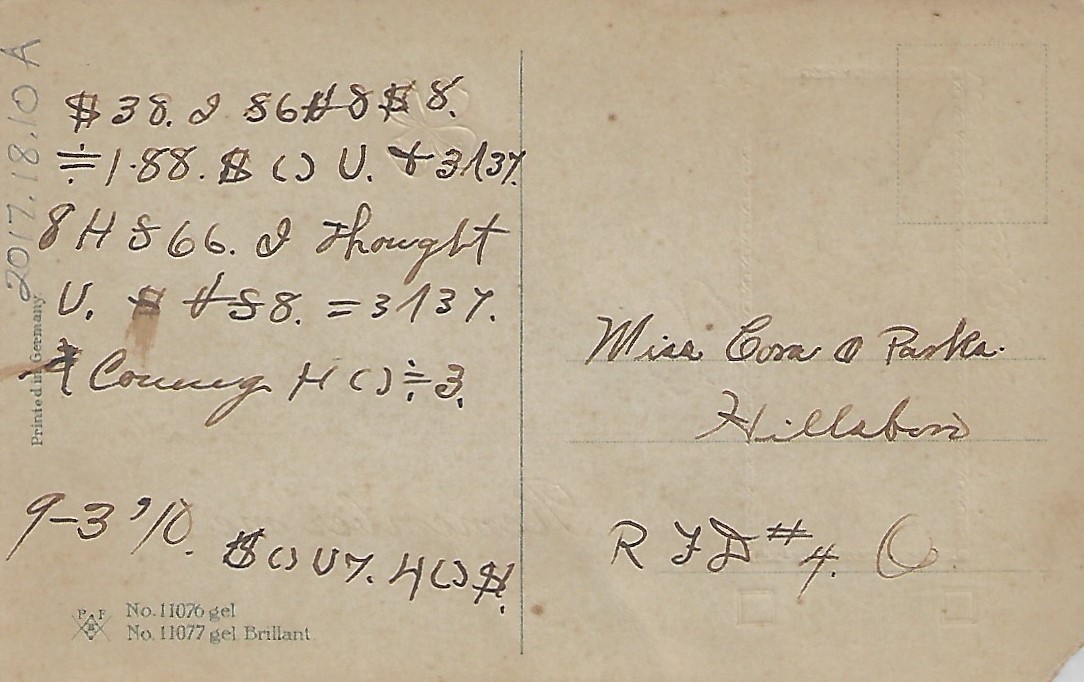 2017.18.10 A
$ 38. I S6H8$ 8.
÷1·88. $ () U. + 3137.
8 H S 66. I Thought
U. $ HS8. = 3137.
Coming H () ÷ 3.
9-3 '10.
$ () U 7. H () $.
Printed in Germany
P F B
No. 11076 gel
No. 11077 gel Brillant
Miss Cora O Parks.
Hillsboro
R F D # 4. O.